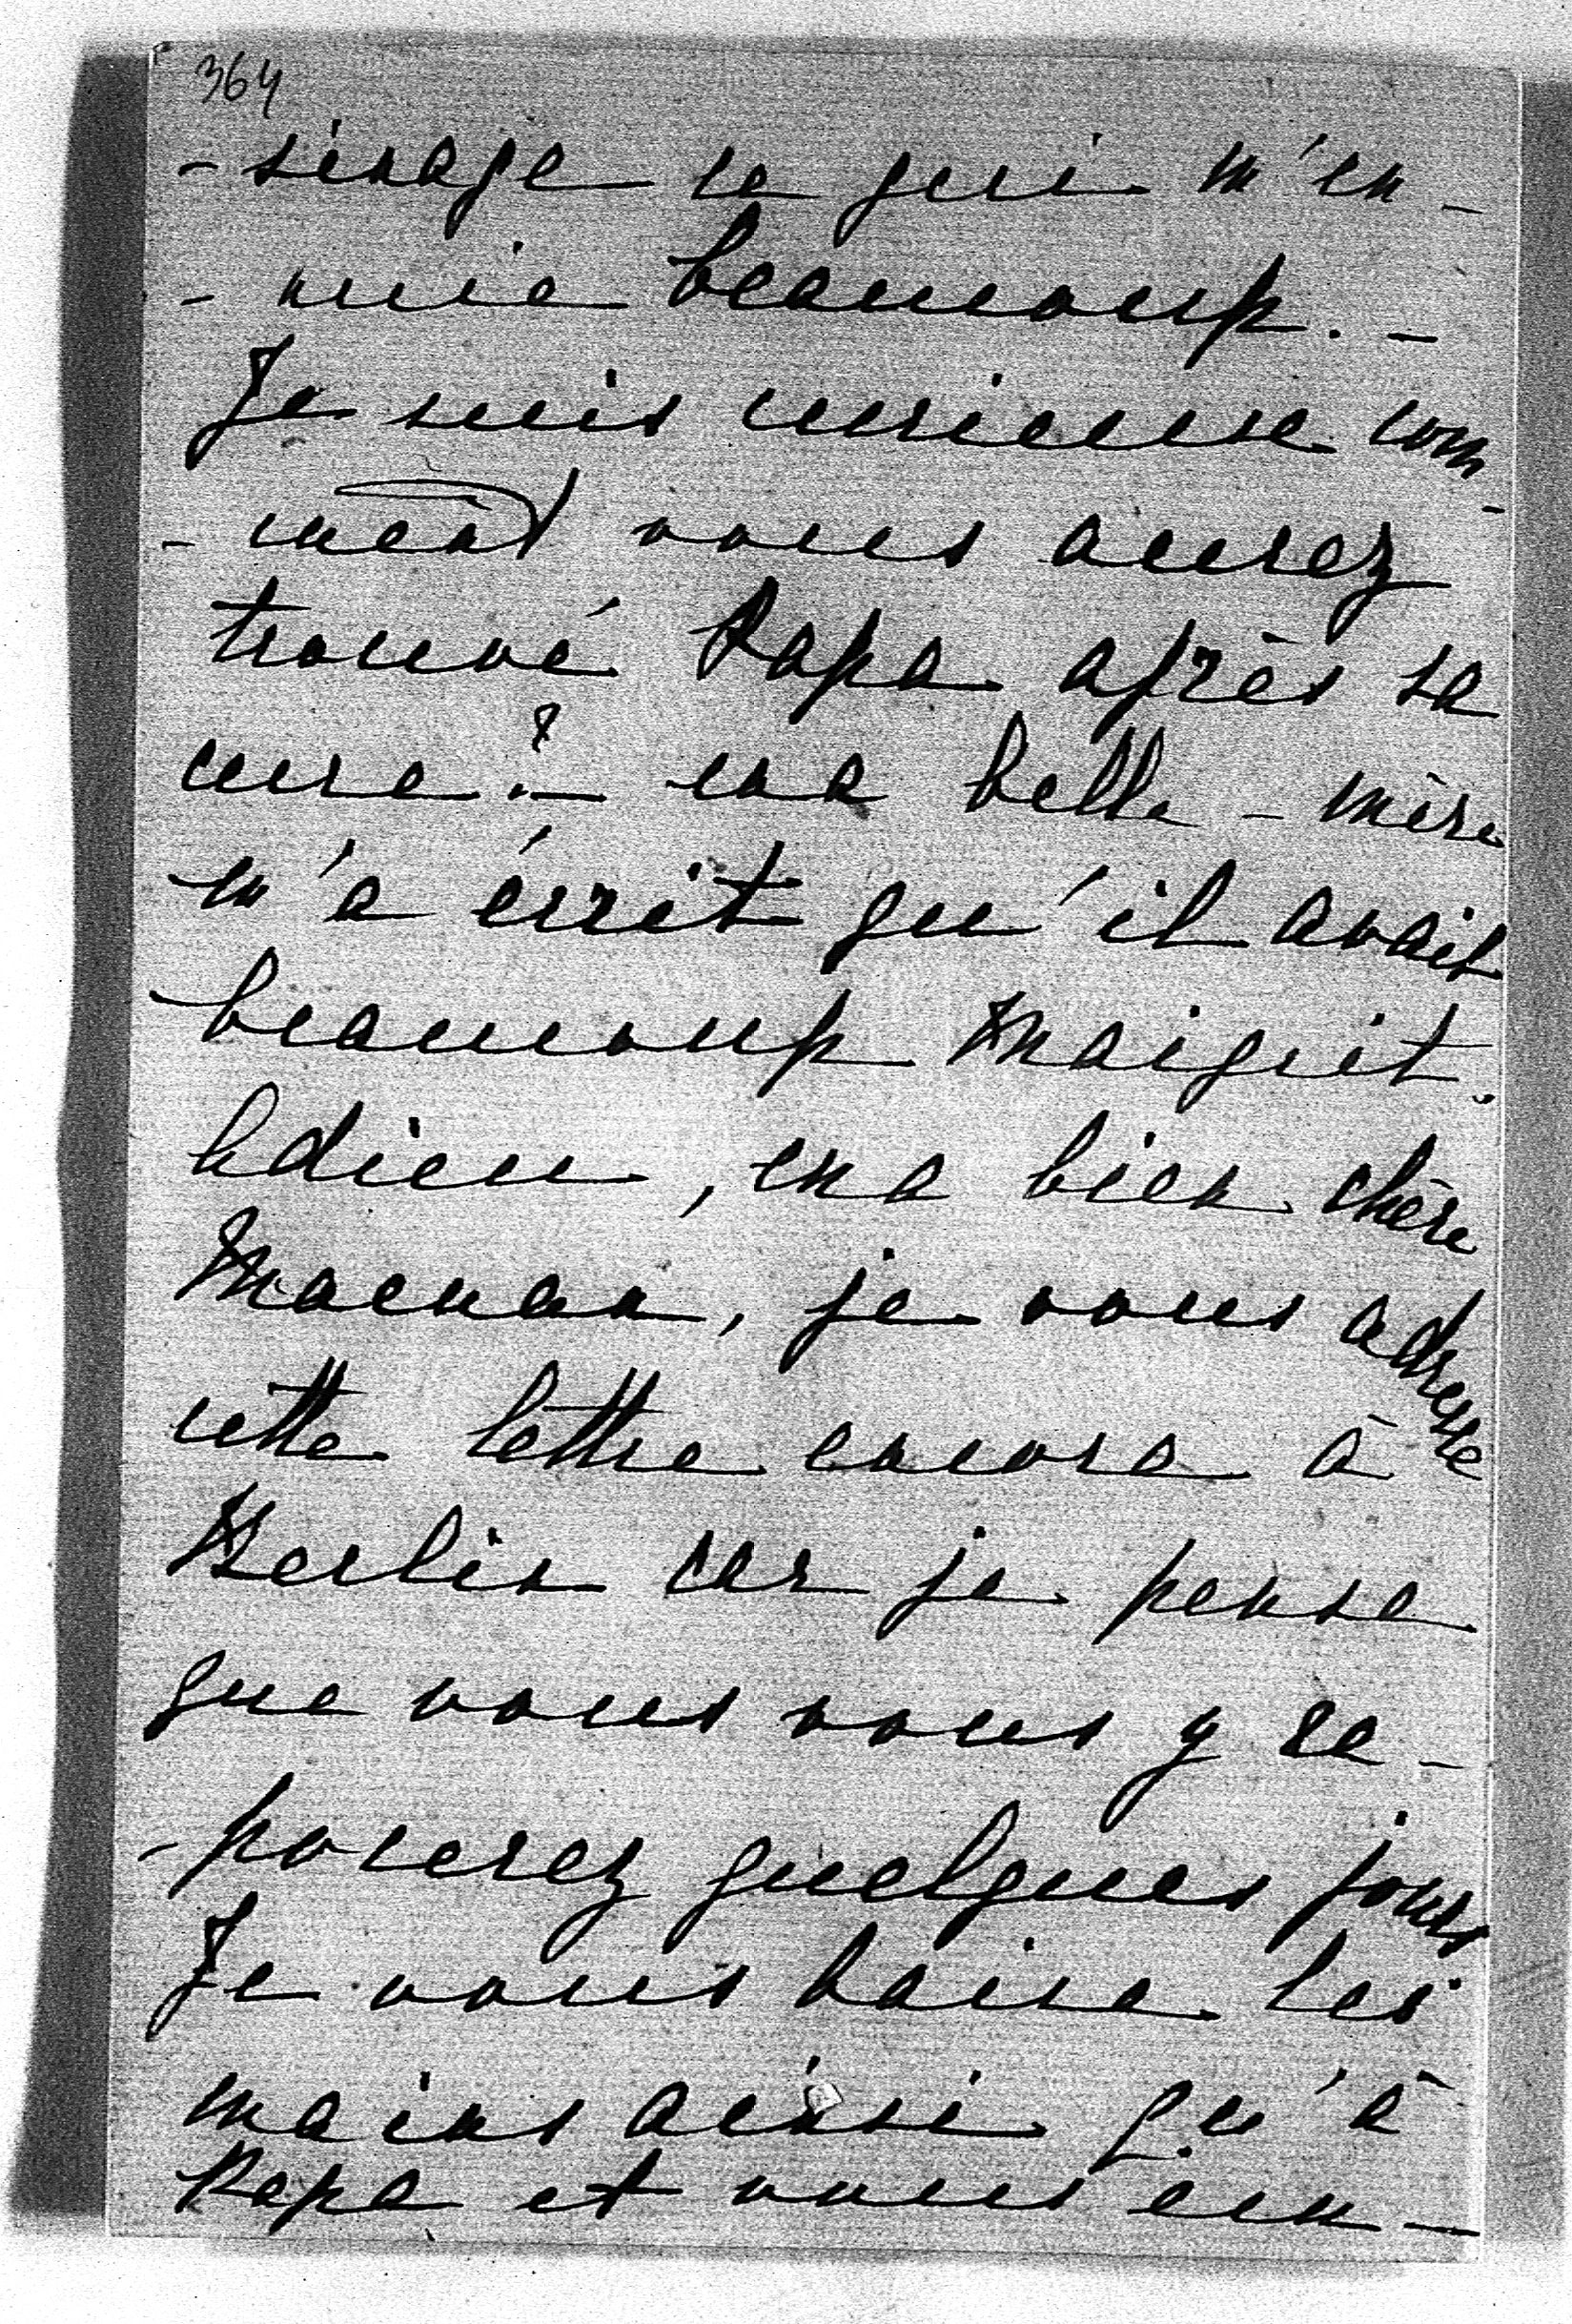 364
- sinage ce qui m'en -
- nuie beaucoup. -
Je suis curieuse com -
- ment vous aurez
trouvé Papa après sa
cure? - ma belle - mère
m'a écrit qu'il avait
beaucoup maigrit.
Adieu, ma bien chère
Maman, je vous adresse
cette lettre encore à
Berlin car je pense
que vous vous y re -
- poserez quelques jours
Je vous baise les
mains ainsi qu'à
Papa et vous em -